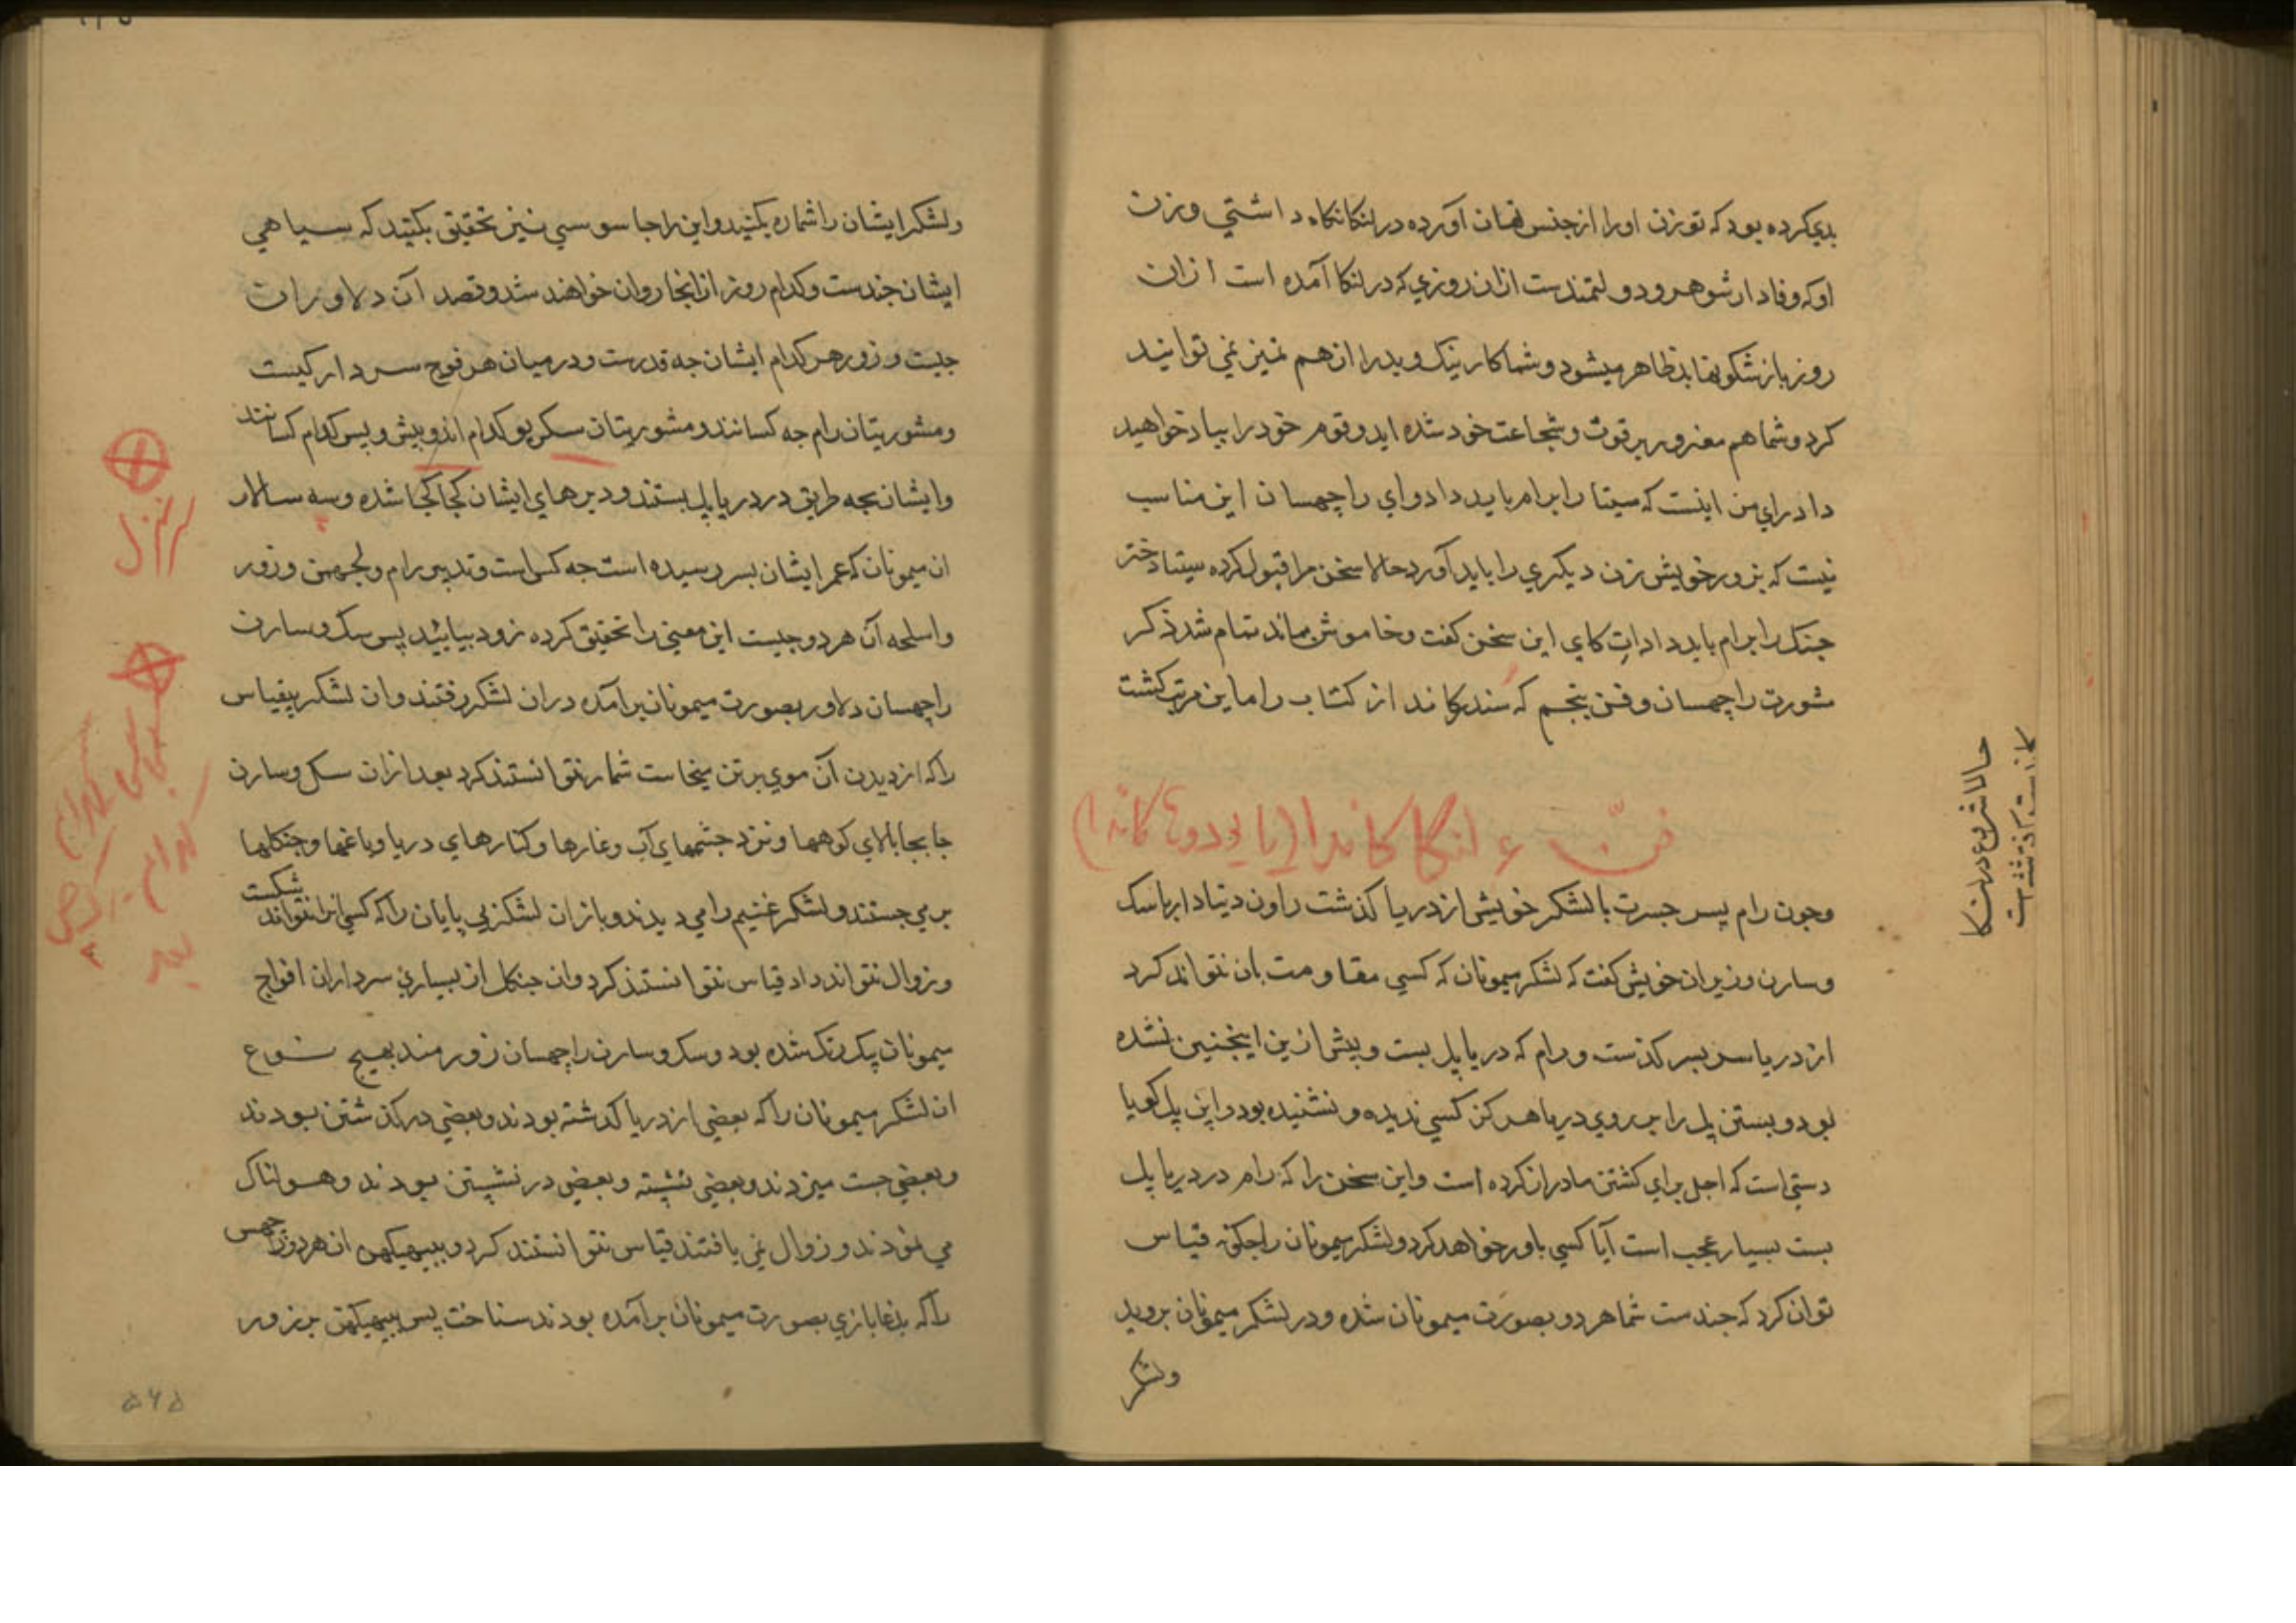 بدي کرده بود که تو زن او را از جنس نهان آورده در لنکا نکاه داشتي و زن
او که وفادار شوهر و دولتمندست ازان روزي که در لنکا آمده است ازان
روز باز شکونها بد ظاهر ميشود و شما کار نيک و بد را ازهم تميز نمي توانيد
کرد و شما هم مغرور بر قوت و شجاعت خود شده ايد و قوم خود را بباد خواهيد
داد راي من اينست که سيتا را برام بايد داد و اي راچهسان اين مناسب
نيست که بزور خويش زن ديکري را بايد آورد حالا سخن مرا قبول کرده سيتا دختر
جنک را برام بايد داد اتِ کاي اين سخن کفت و خاموش بماند تمام شد ذکر
مشورت راچهسان و فن پنجم که سندر کاند از کتاب راماين مرتب کشت
فنّ ۶ لنکا کاندا (يا يودها کاندا)
و جون رام پسر جسرت با لشکر خويش از دريا کذشت راون دنيادار باسک
و سارن وزيران خويش کفت که لشکر ميمونان که کسي مقاومت بان نتواند کرد
از دريا سر بسر کذست و رام که دريا پل بست و پيش ازين اينجنين نشده
بود و بستن پل را بر روي دريا هرکز کسي نديده و نشنيده بود و اين پل کويا
دستي است که اجل براي کشتن ما دراز کرده است و اين سخن را که رام در دريا پل
بست بسيار عجب است آيا کسي باور خواهد کرد و لشکر ميمونان را جکونه قياس
توان کرد که جندست شما هر دو بصورت ميمونان شده و در لشکر ميمونان برويد
ولشکر
حالا شروع در لنکا
ولشکر ايشان را شماره بکنيد و اين را جاسوسي نيز تحقيق بکنيد که سياهي
ايشان جندست و کدام روز از انجا روان خواهند شد و قصد آن دلاوران
جيست و زور هر کدام ايشان جه قدرست و درميان هر فوج سردار کيست
و مشورتيان رام جه کسانند و مشورتيان سکريو کدام اند و پيش و پس کدام کسانند
و ايشان بچه طريق در دريا پل بستند و ديرهاي ايشان کجا کجا شده و سه سالار
ان ميمونان که عمر ايشان بسر رسيده است جه کس است و تدبير رام و لجهمن و زور
و اسلحه آن هر دو جيست اين معني را تحقيق کرده زود بيابيد پس سک و سارن
راچهسان دلاور بصورت ميمونان برآمده دران لشکر رفتند و ان لشکر بيقياس
را که از ديدن آن موي بر تن ميخاست شمار نتوانستند کرد بعد ازان سک و سارن
جا بجا بالاي کوهها و نزد جشمهاي آب و غارها و کنارهاي دريا و باغها و جنکلها
بر مي جستند و لشکر غنيم را مي ديدند و باز ان لشکر بي پايان را که کسي انرا نتواند شکست
و زوال نتواند داد قياس نتوانستند کرد و ان جنکل از بسياري سرداران افواج
ميمونان يک رنک شده بود و سک و سارن راچهسان زورمند بهيج نوع
ان لشکر ميمونان را که بعضي از دريا کدشته بودند و بعضي در کذشتن بودند
و بعضي جست ميزدند و بعضي نشسته و بعضي در نشستن بودند و هولناک
مي نمودند و زوال نمي يافتند قياس نتوانستند کرد و ببهيکهن ان هر دو راچهس
را که بدغابازي بصورت ميمونان برآمده بودند سناخت پس ببهيکهن بر زور
۵۶۵